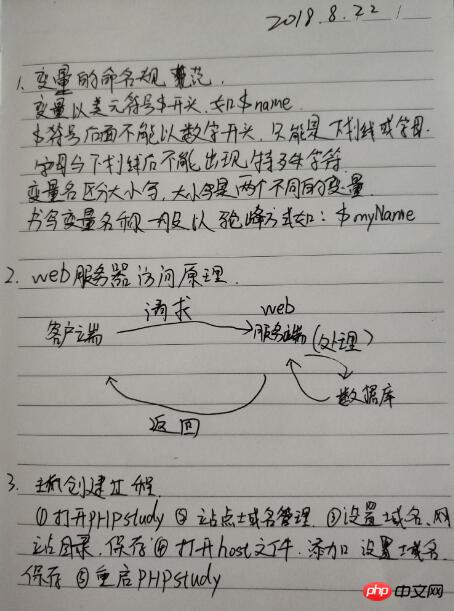 2018.8.22
1. 变量的命名规范.
变量以美元符号$开头.如$name
$符号后面不能以数字开头,只能是下划线或字母.
字母与下划线后不能出现特殊字符.
变量名区分大小写,大小写是两个不同的变量.
书写变量名称一般以驼峰方式如:$myName
2. web服务器访问原理.
请求
web
客户端
服务端(处理)
数据库
返回
3. 主机创建过程.
①打开PHPstudy ②站点域名管理 ③设置域名、网
站目录,保存 ④打开host文件.添加 设置域名
保存 ⑤重启PHPstudy
php中文网